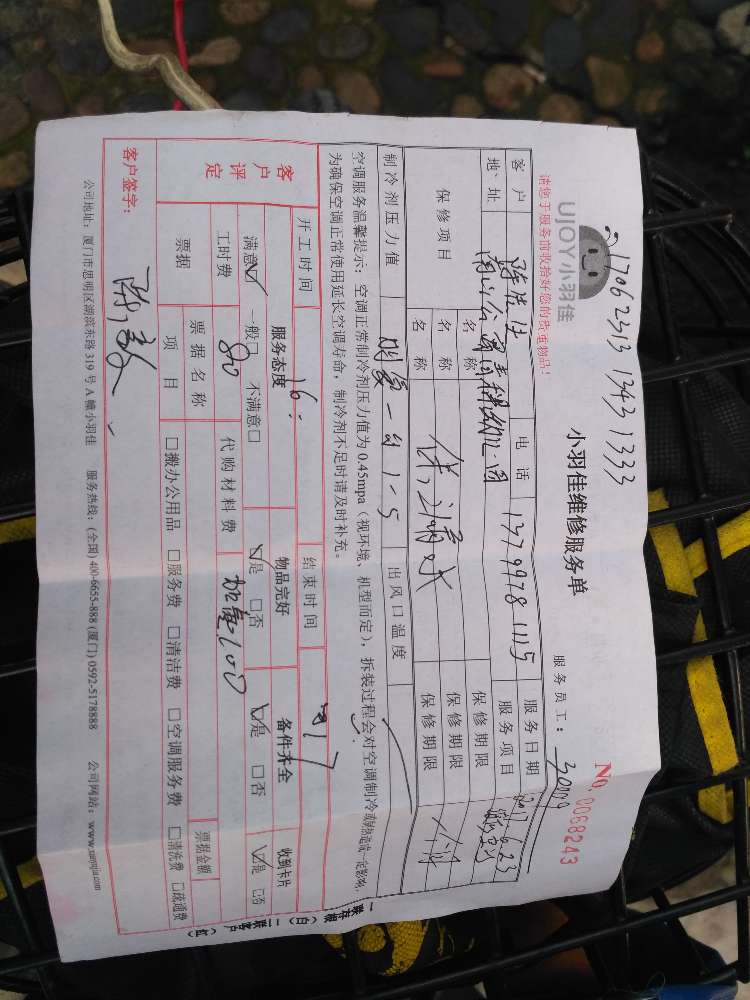 17062313 1343 1333
UJOY小羽佳
请您于服务前收拾好您的贵重物品!
小羽佳维修服务单
服务员工:
No. 0068243
客户
电话 13799781115
服务日期
地址
服务项目
保修项目
名称
保修期限
名称
保修期限
名称
保修期限
制冷剂压力值
出风口温度
空调服务温馨提示:空调正常制冷剂压力值为0.45mpa(视环境、机型而定),拆装过程会对空调制冷或制热造成一定影响,
为确保空调正常使用延长空调寿命,制冷剂不足时请及时补充。
开工时间 16:
结束时间 17
客户评定
服务态度
物品完好
备件齐全
收到卡片
满意☑ 一般□ 不满意□
☑是 □否
☑是 □否
☑是 □否
工时费 80
代购材料费 100
票据
票据名称
票据金额
项目
□搬办公用品 □服务费 □清洁费 □空调服务费 □清洗费 □疏通费
客户签字:
一联存根(白) 二联客户(红)
公司地址:厦门市思明区湖滨东路319号A幢小羽佳 服务热线:(全国) 400-6655-888 (厦门) 0592-5178888 公司网站:www.xiaoyujia.com